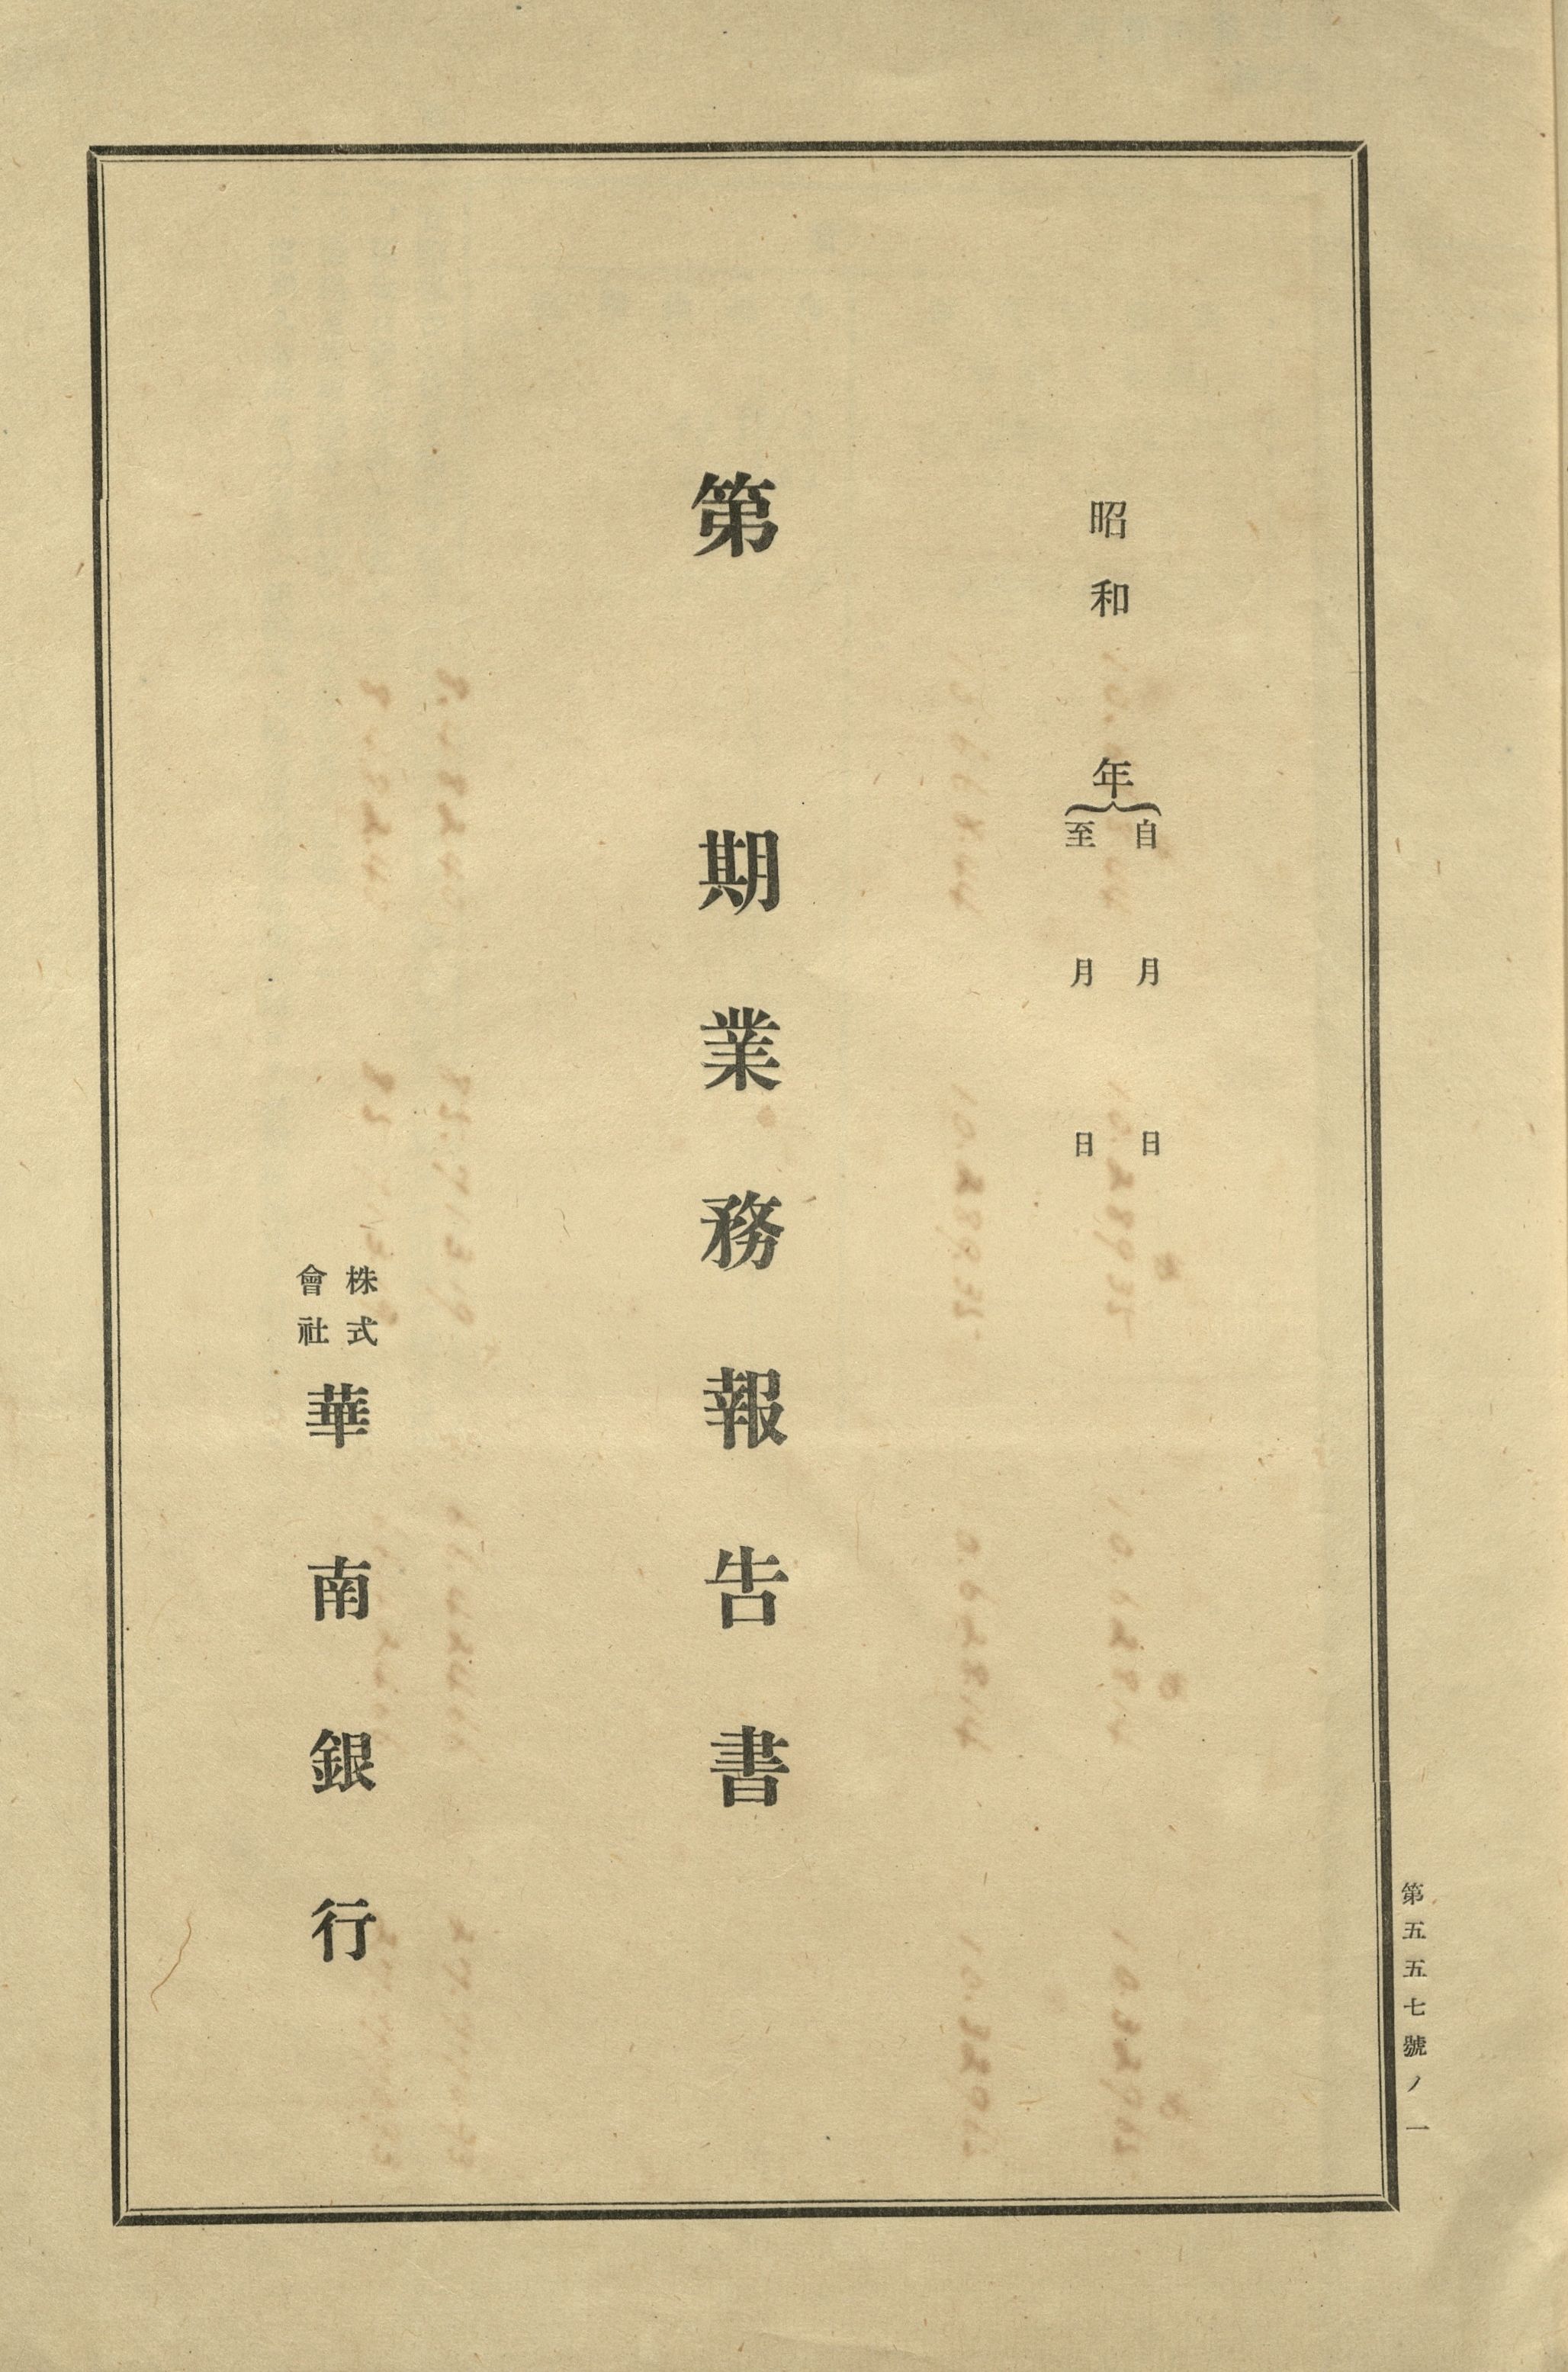 昭和 年
自 月 日
至 月 日
第 期業務報告書
株式
會社
華南銀行
第五五七號ノ一